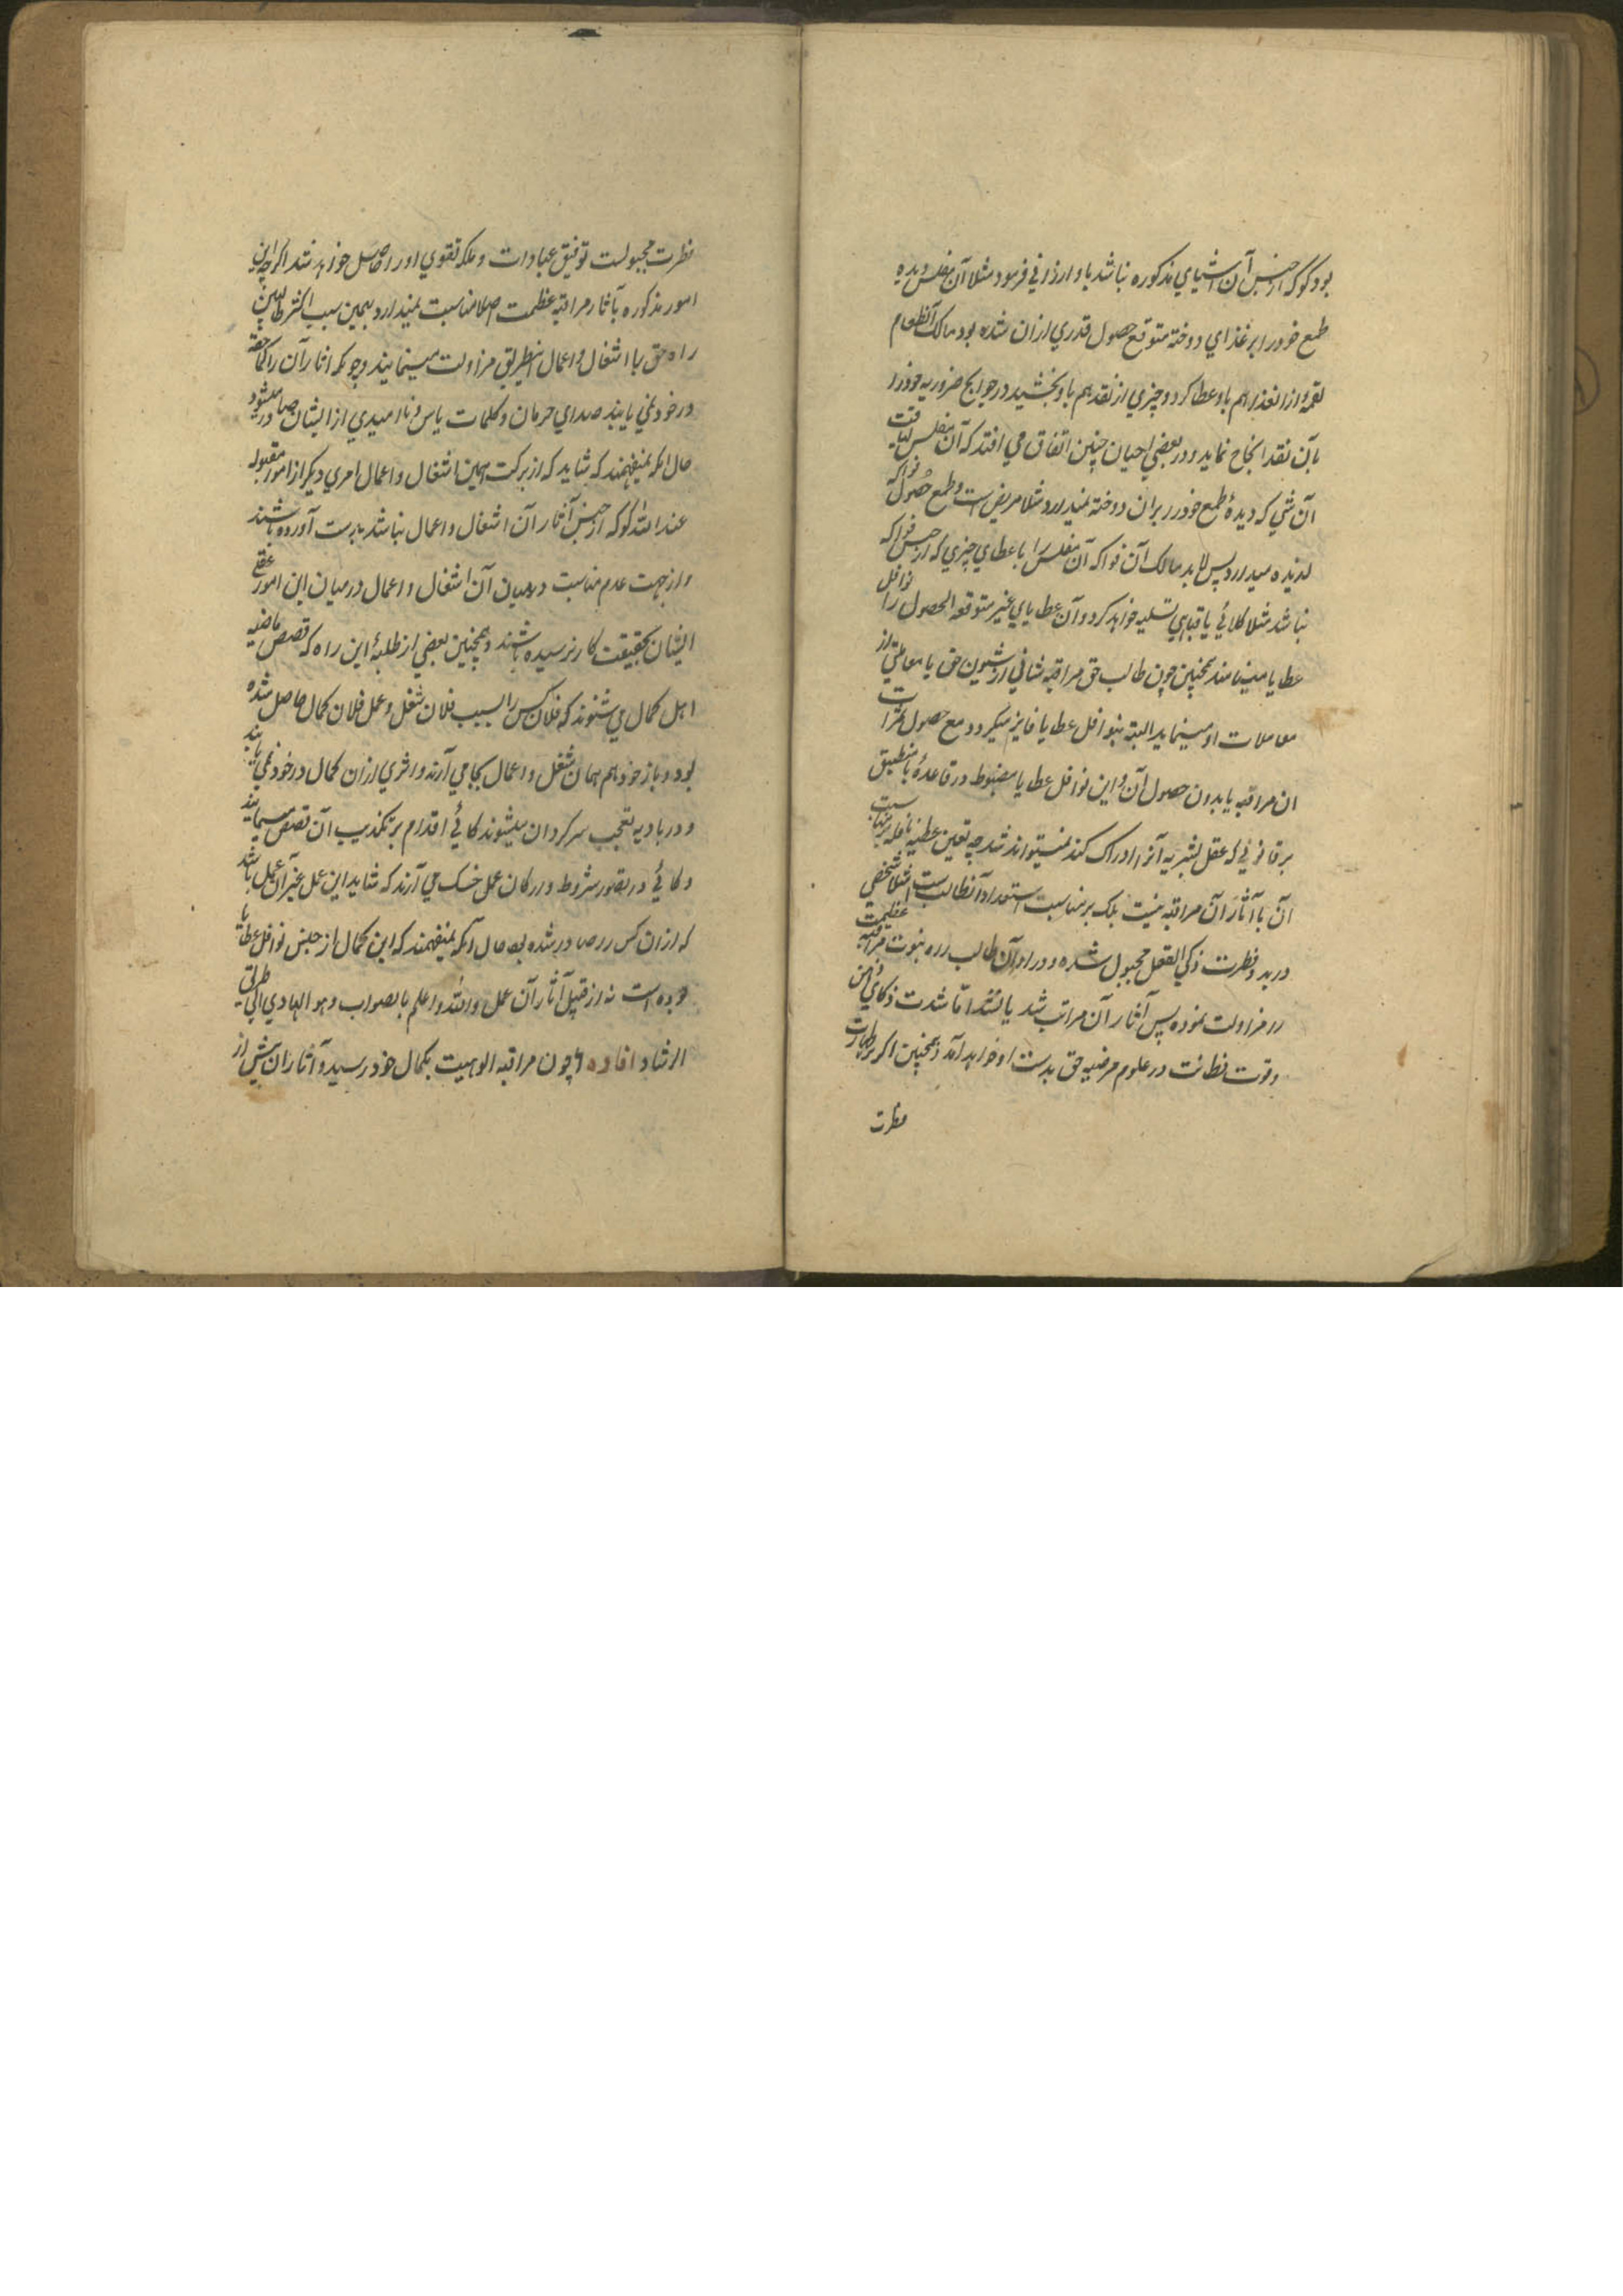 بود گو که از جنس آن اشیای مذکوره نباشد باو ارزانی فرمود مثلا آن مفلس دیده
طمع خود را بر غذای دوخته متوقع حصول قدری ازان شده بود مالک آنطعام
لقمهٔ ازانغذا هم باو عطا کرد و چیزی از نقد هم باو بخشید در حوایج ضروریه خود را
بآن نقد انجاح نماید و در بعضی احیان چنین اتفاق می افتد که آن مفلس لیاقت
آن شی که دیدهٔ طمع خود را بران دوخته نمیدارد مثلا مریض است و طمع حصول فواکه
لذیذه میدارد پس لابد مالک آن فواکه آن مفلس را باعطای چیزی که از جنس فواکه
نباشد مثلا کلاهی یا قبای تسلیه خواهد کرد و آن عطایای غیر متوقعة الحصول را نوافل
عطایا مینامند همچنین چون طالب حق مراقبه شانی از شیون حق یا معاملتی از
معاملات او مینماید البته بنوافل عطایا فایز میگردد مع حصول ثمرات
ان مراقبه یا بدون حصول آن و این نوافل عطایا مضبوط در قاعدهٔ یا منطبق
بر قانونی که عقل بشریه آنرا ادراک کند نمیتواند شد چه تعین عطیه نافله بر مناسبت
آن با آثار آن مراقبه نیست بلکه بر مناسبت استعداد آنطالبست مثلا شخصی
در بدو فطرت ذکی العقل مجبول شده و در اوان طالب راه نبوت مراقبه عظمت
را مزاولت نموده پس آثار آن مراتب شد یا نشد اما شدت ذکای ذهن
و قوت فطانت در علوم مرضیه حق بدست او خواهد آمد و همچنین اگر بر طهارت
فطرت
فطرت مجبولست توفیق عبادات و ملکه تقوی او را حاصل خواهد شد اگر چه این
امور مذکوره بآثار مراقبه عظمت اصلا مناسبت نمیدارد بهمین سبب اکثر طالبین
راه حق با اشغال و اعمال اینطریق مزاولت مینمایند و چونکه اثار آن را کما حقه
در خود نمی یابند صدای حرمان و کلمات یاس و ناامیدی از ایشان صادر میشود
حال انکه نمیفهمند که شاید که از برکت همین اشغال و اعمال امری دیگر از امور مقبوله
عند الله گو که از جنس آثار آن اشغال و اعمال نباشد بدست آورده باشند
و از جهت عدم مناسبت درمیان آن اشغال و اعمال درمیان این امور عقل
ایشان بحقیقت کار نرسیده باشند و همچنین بعضی از طلبهٔ این راه که قصص ماضیه
اهل کمال می شنوند که فلان کس را بسبب فلان شغل و عمل فلان کمال حاصل شده
بود و باز خود هم همان شغل و اعمال بجا می آرند و اثری ازان کمال در خود نمی یابند
و در بادیه تعجب سرگردان میشوند گاهی اقدام بر تکذیب آن قصص مینمایند
و گاهی در بقصور شروط و ارکان عمل خسک می آرند که شاید این عمل غیر آن عمل باشد
که ازان کس صادر شده بود حال آنکه نمیفهمند که این کمال از جنس نوافل عطایا
بوده است نه از قبیل آثار آن عمل والله اعلم بالصواب وهو الهادی الی طریق
الرشاد افاده ۶ چون مراقبه الوهیت بکمال خود رسید و آثار آن بیش از